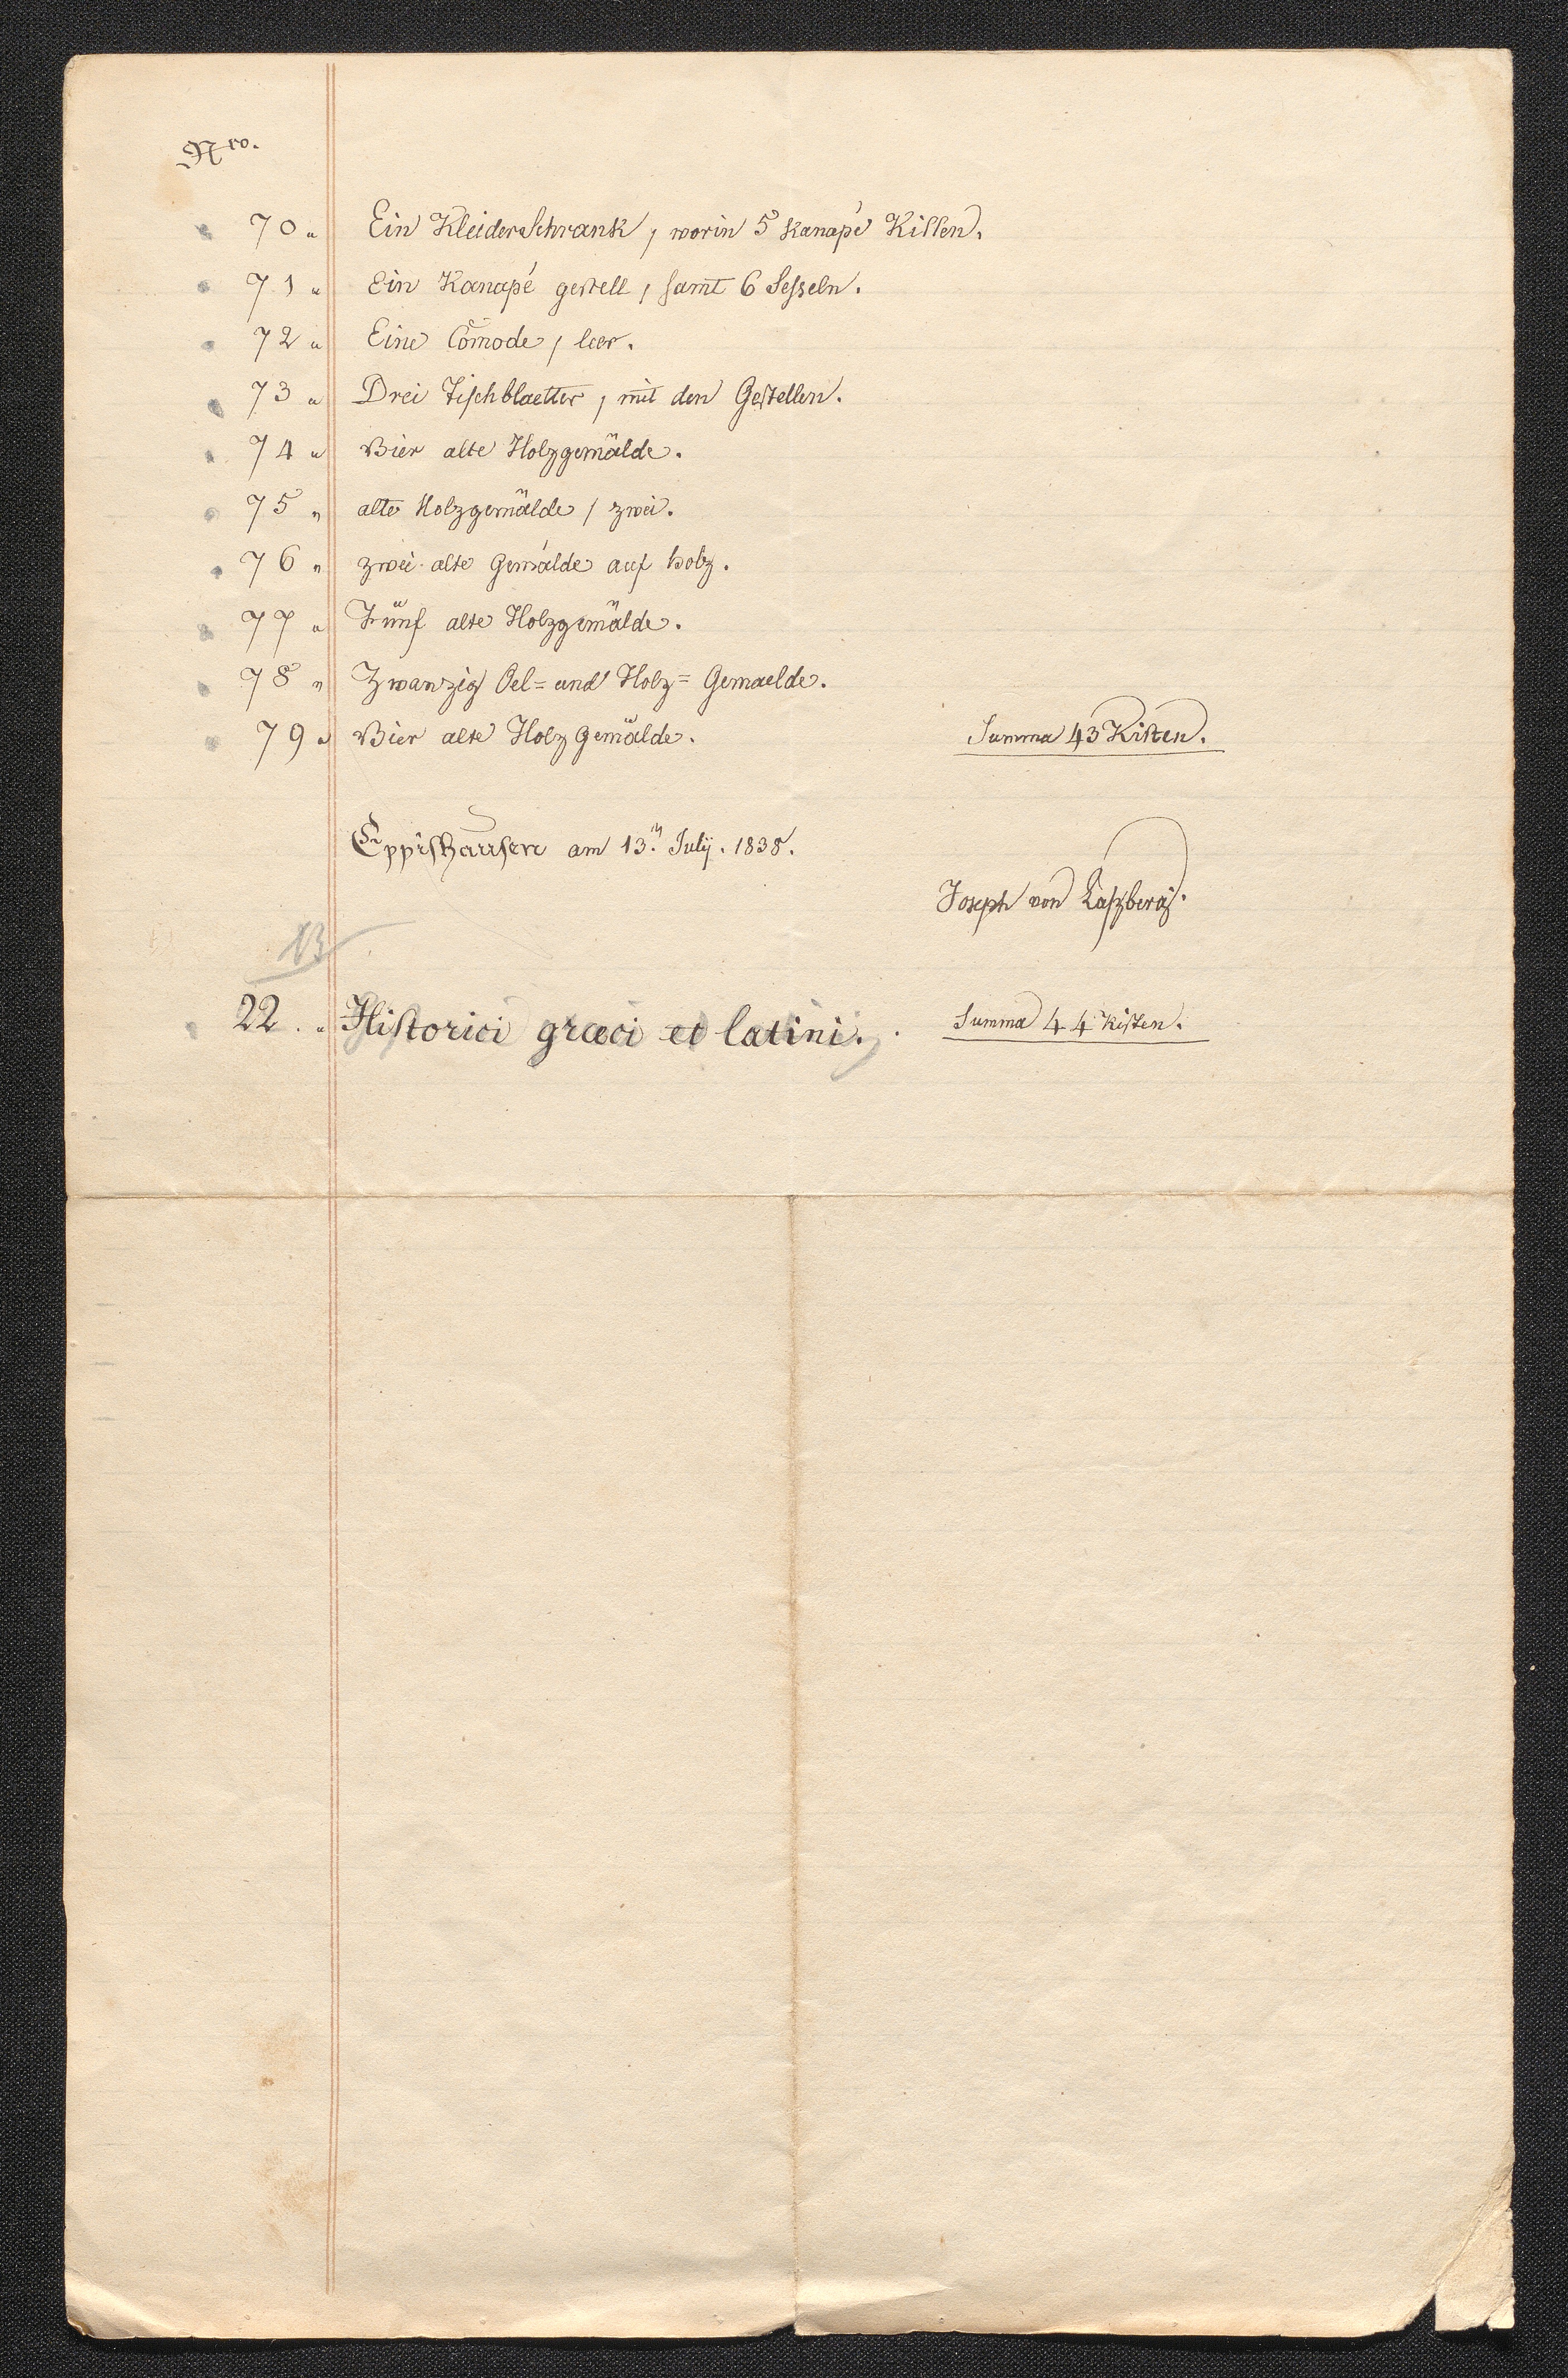 Nro.
70 " Ein Kleiderschrank, worin 5 Kanapé Kissen.
71 " Ein Kanapé gestell, samt 6 Sesseln.
72 " Eine Com̄ode, leer.
73 " Drei Tischblaetter, mit den Gestellen.
74 " Vier alte Holzgemälde.
75 " alte Holzgemälde, zwei.
76 " zwei alte Gemälde auf holz.
77 " Fünf alte Holzgemälde.
78 " Zwanzig Oel= und Holz= Gemaelde.
79 " Vier alte Holz Gemälde. Summa 43 Kisten.
Eppishausen am 13.n July. 1838.
Joseph von Laßberg.
13
22. " Historici græci et latini. Summa 44 Kisten.